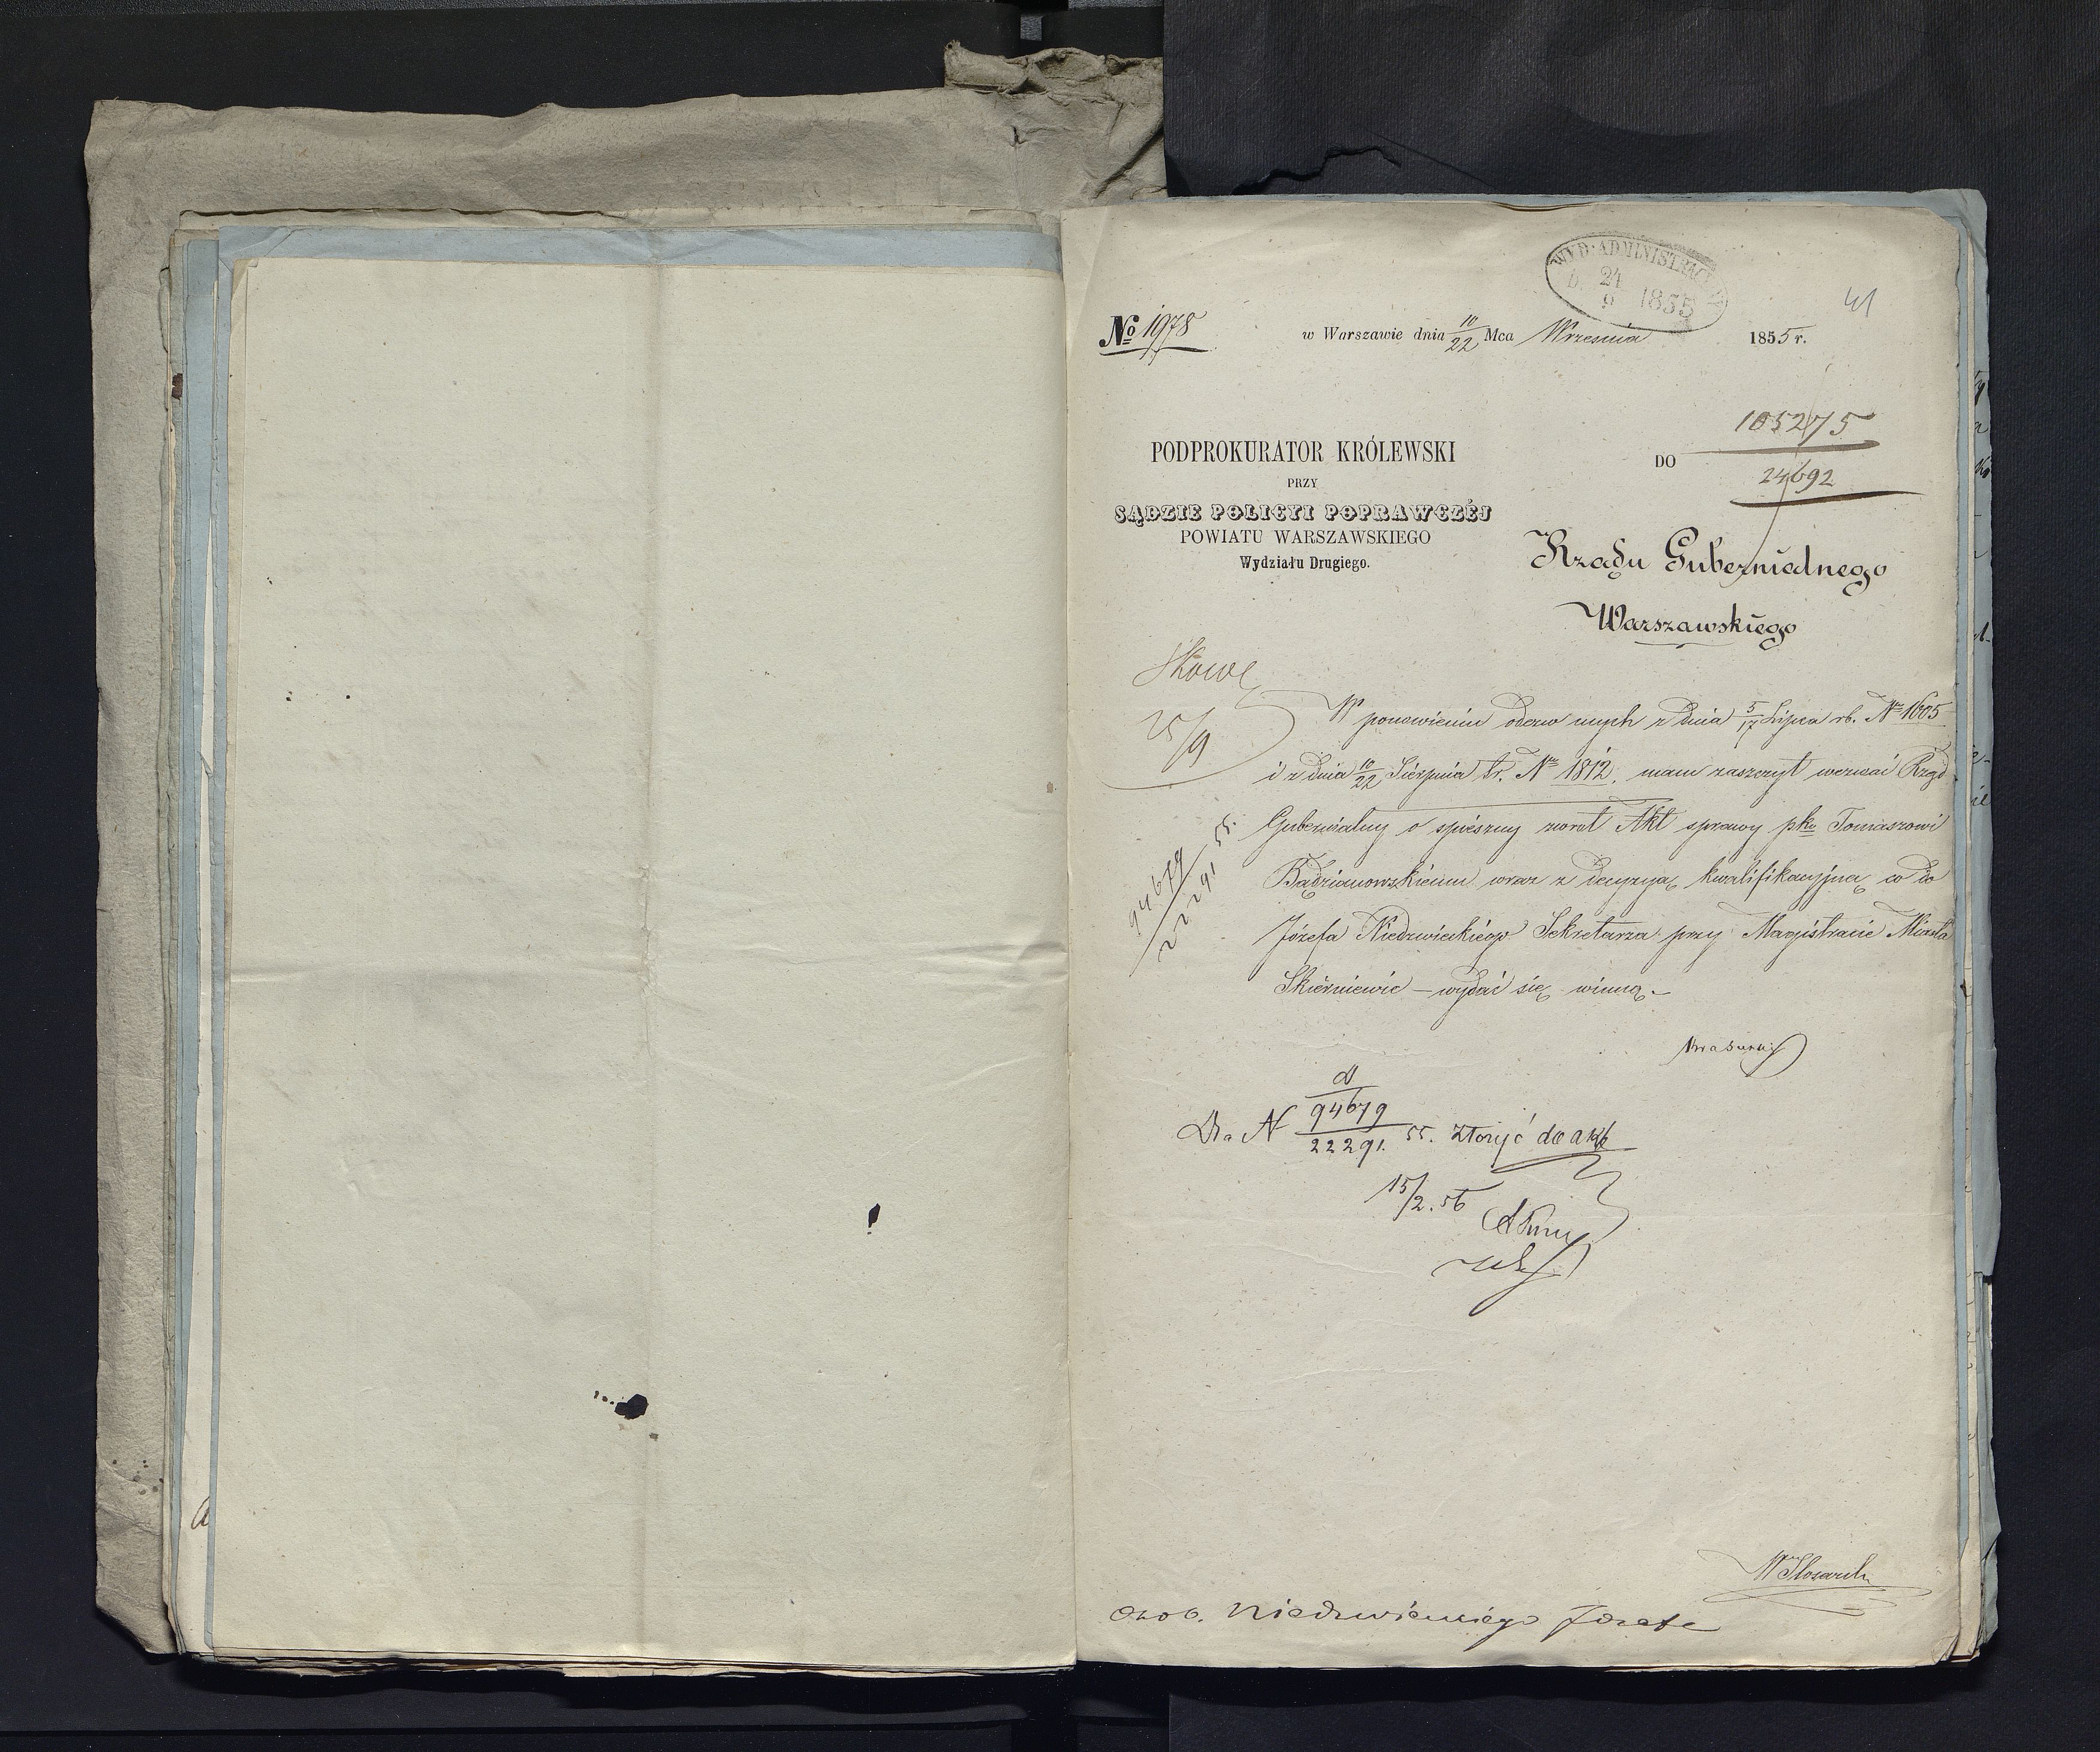 WYD: ADMINISTRAC
D. 24/9 1855
41
№ 1978
w Warszawie dnia 10/22 Mca Września 1855 r.
105275
DO
24692
PODPROKURATOR KRÓLEWSKI
PRZY
SĄDZIE POLICYI POPRAWCZÉJ
POWIATU WARSZAWSKIEGO
Wydziału Drugiego.
Rządu Gubernialnego
Warszawskiego
25/9
W ponowieniu odezw mych z dnia 5/17 Lipca rb. No 1605
i z dnia 10/22 Sierpnia tr. No 1812. mam zaszczyt wezwać Rząd
Gubernialny o spieszny zwrot Akt sprawy pko Tomaszowi
Bądzianowskiemu wraz z decyzyą kwalifikacyjną co do
Józefa Niedzwieckiego Sekretarza przy Magistracie Miasta
Skierniewic – wydać się winną. –
94679
22291 55.
Do N 94679
22291. 55. złożyć do akt
15/2. 56
Osob. Niedzwieckiego Józefa